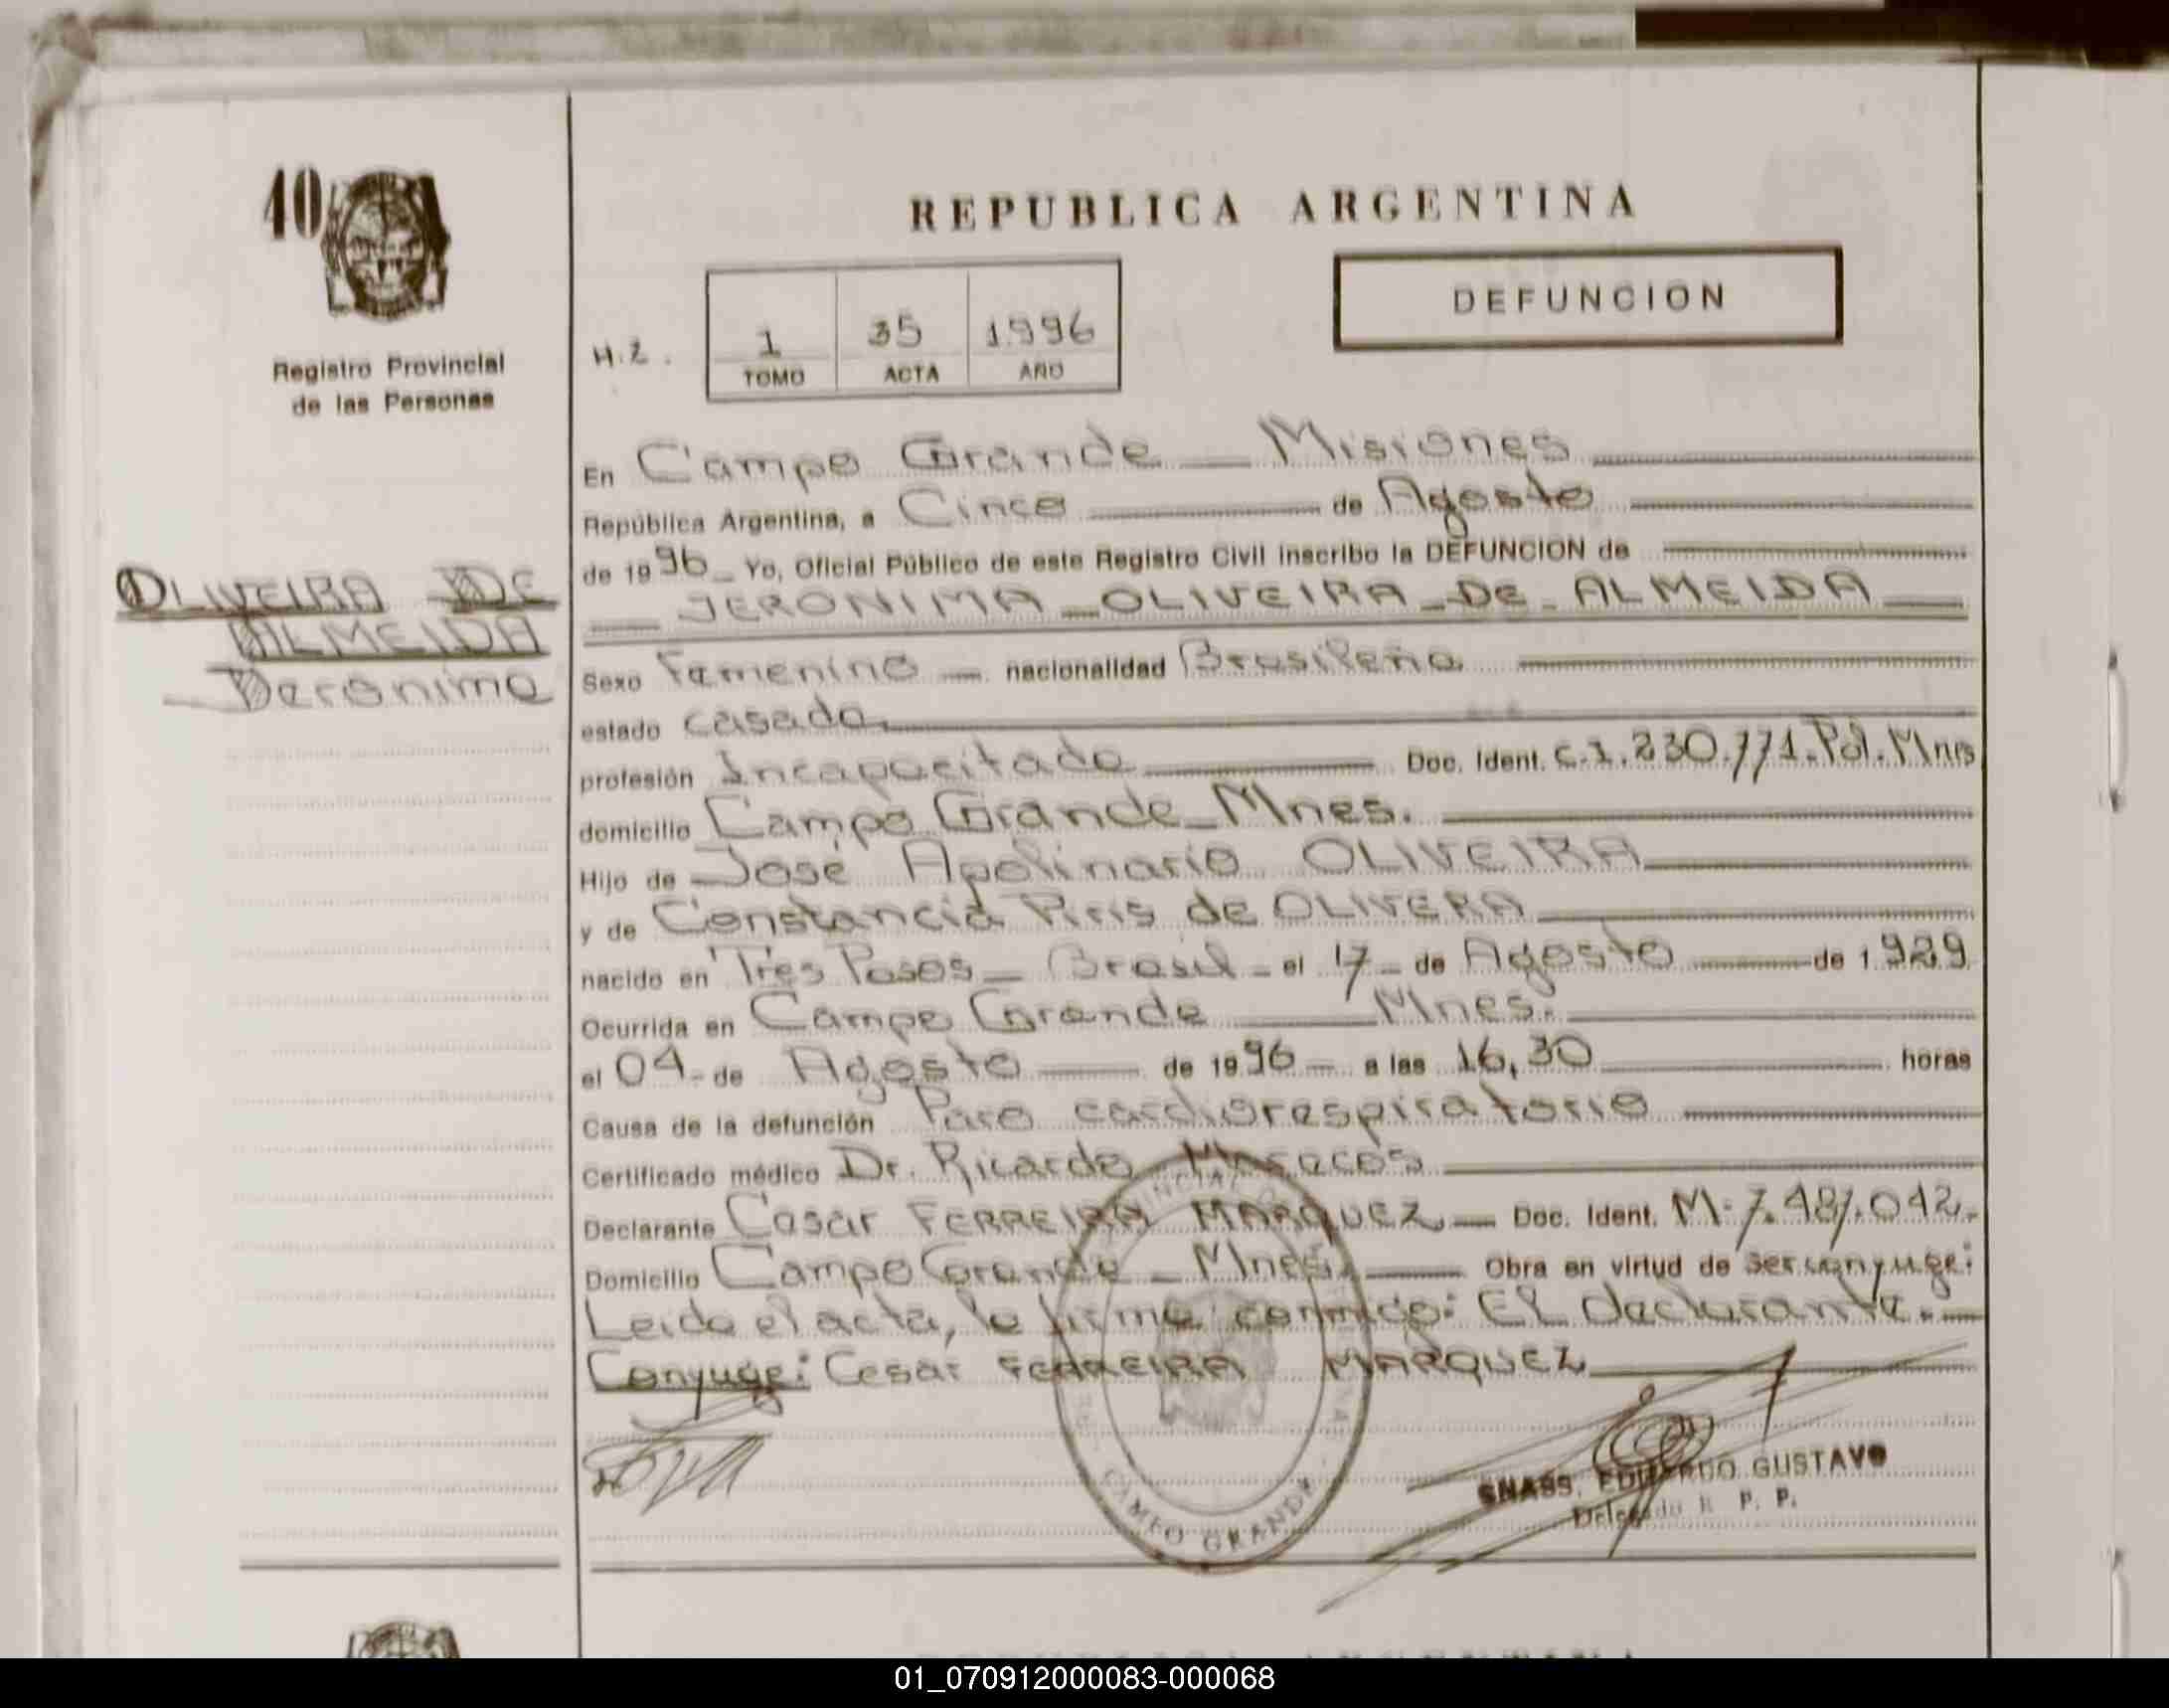 40
Registro Provincial
de las Personas
OLIVEIRA DE
ALMEIDA
Jeronima
REPUBLICA ARGENTINA
DEFUNCION
H.Z.
1 35 1996
TOMO ACTA AÑO
En Campo Grande — Misiones
República Argentina, a Cinco de Agosto
de 1996 Yo, Oficial Público de este Registro Civil inscribo la DEFUNCION de
JERONIMA OLIVEIRA DE ALMEIDA
Sexo Femenino — nacionalidad Brasileña
estado casada.
profesión Incapacitada Doc. Ident. C.I. 230.771. Pol. Mnes
domicilio Campo Grande — Mnes.
Hijo de José Apolinario OLIVEIRA
y de Constancia Piris de OLIVERA
nacido en Tres Pasos — Brasil — el 17 — de Agosto de 1929
Ocurrida en Campo Grande — Mnes.
el 04 — de Agosto — de 1996 — a las 16,30 horas
Causa de la defunción Paro cardiorespiratorio
Certificado médico Dr. Ricardo
Declarante Cesar FERREIRA MARQUEZ — Doc. Ident. M. 7.487.042.
Domicilio Campo Grande — Mnes. Obra en virtud de Ser conyuge:
Leida el acta, la firma conmigo: El declarante.
Conyuge: Cesar FERREIRA MARQUEZ
SNASS, EDUARDO GUSTAVO
Delegado R. P. P.
CAMPO GRANDE
01_070912000083-000068